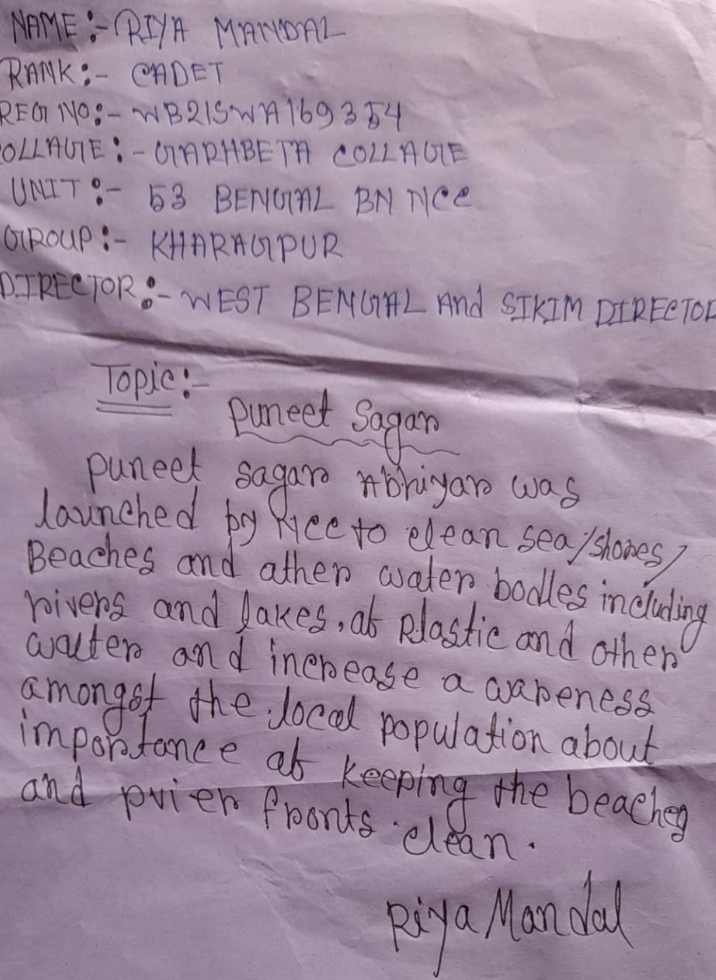 NAME:- RIYA MANDAL
RANK:- CADET
REG NO:- WB21SWA169354
OLLAGE:- GARHBETA COLLAGE
UNIT:- 53 BENGAL BN NCC
GROUP:- KHARAGPUR
DIRECTOR:- WEST BENGAL And SIKIM DIRECTOR
Topic:-
Puneet Sagar
Puneet sagar Abhiyan was
launched by NCC to clean sea/shores/
Beaches and ather water bodies including
rivers and lakes, of Plastic and other
walter and increase a wareness
amongst the local population about
importance of keeping the beaches
and fronts clean.
Riya Mandal